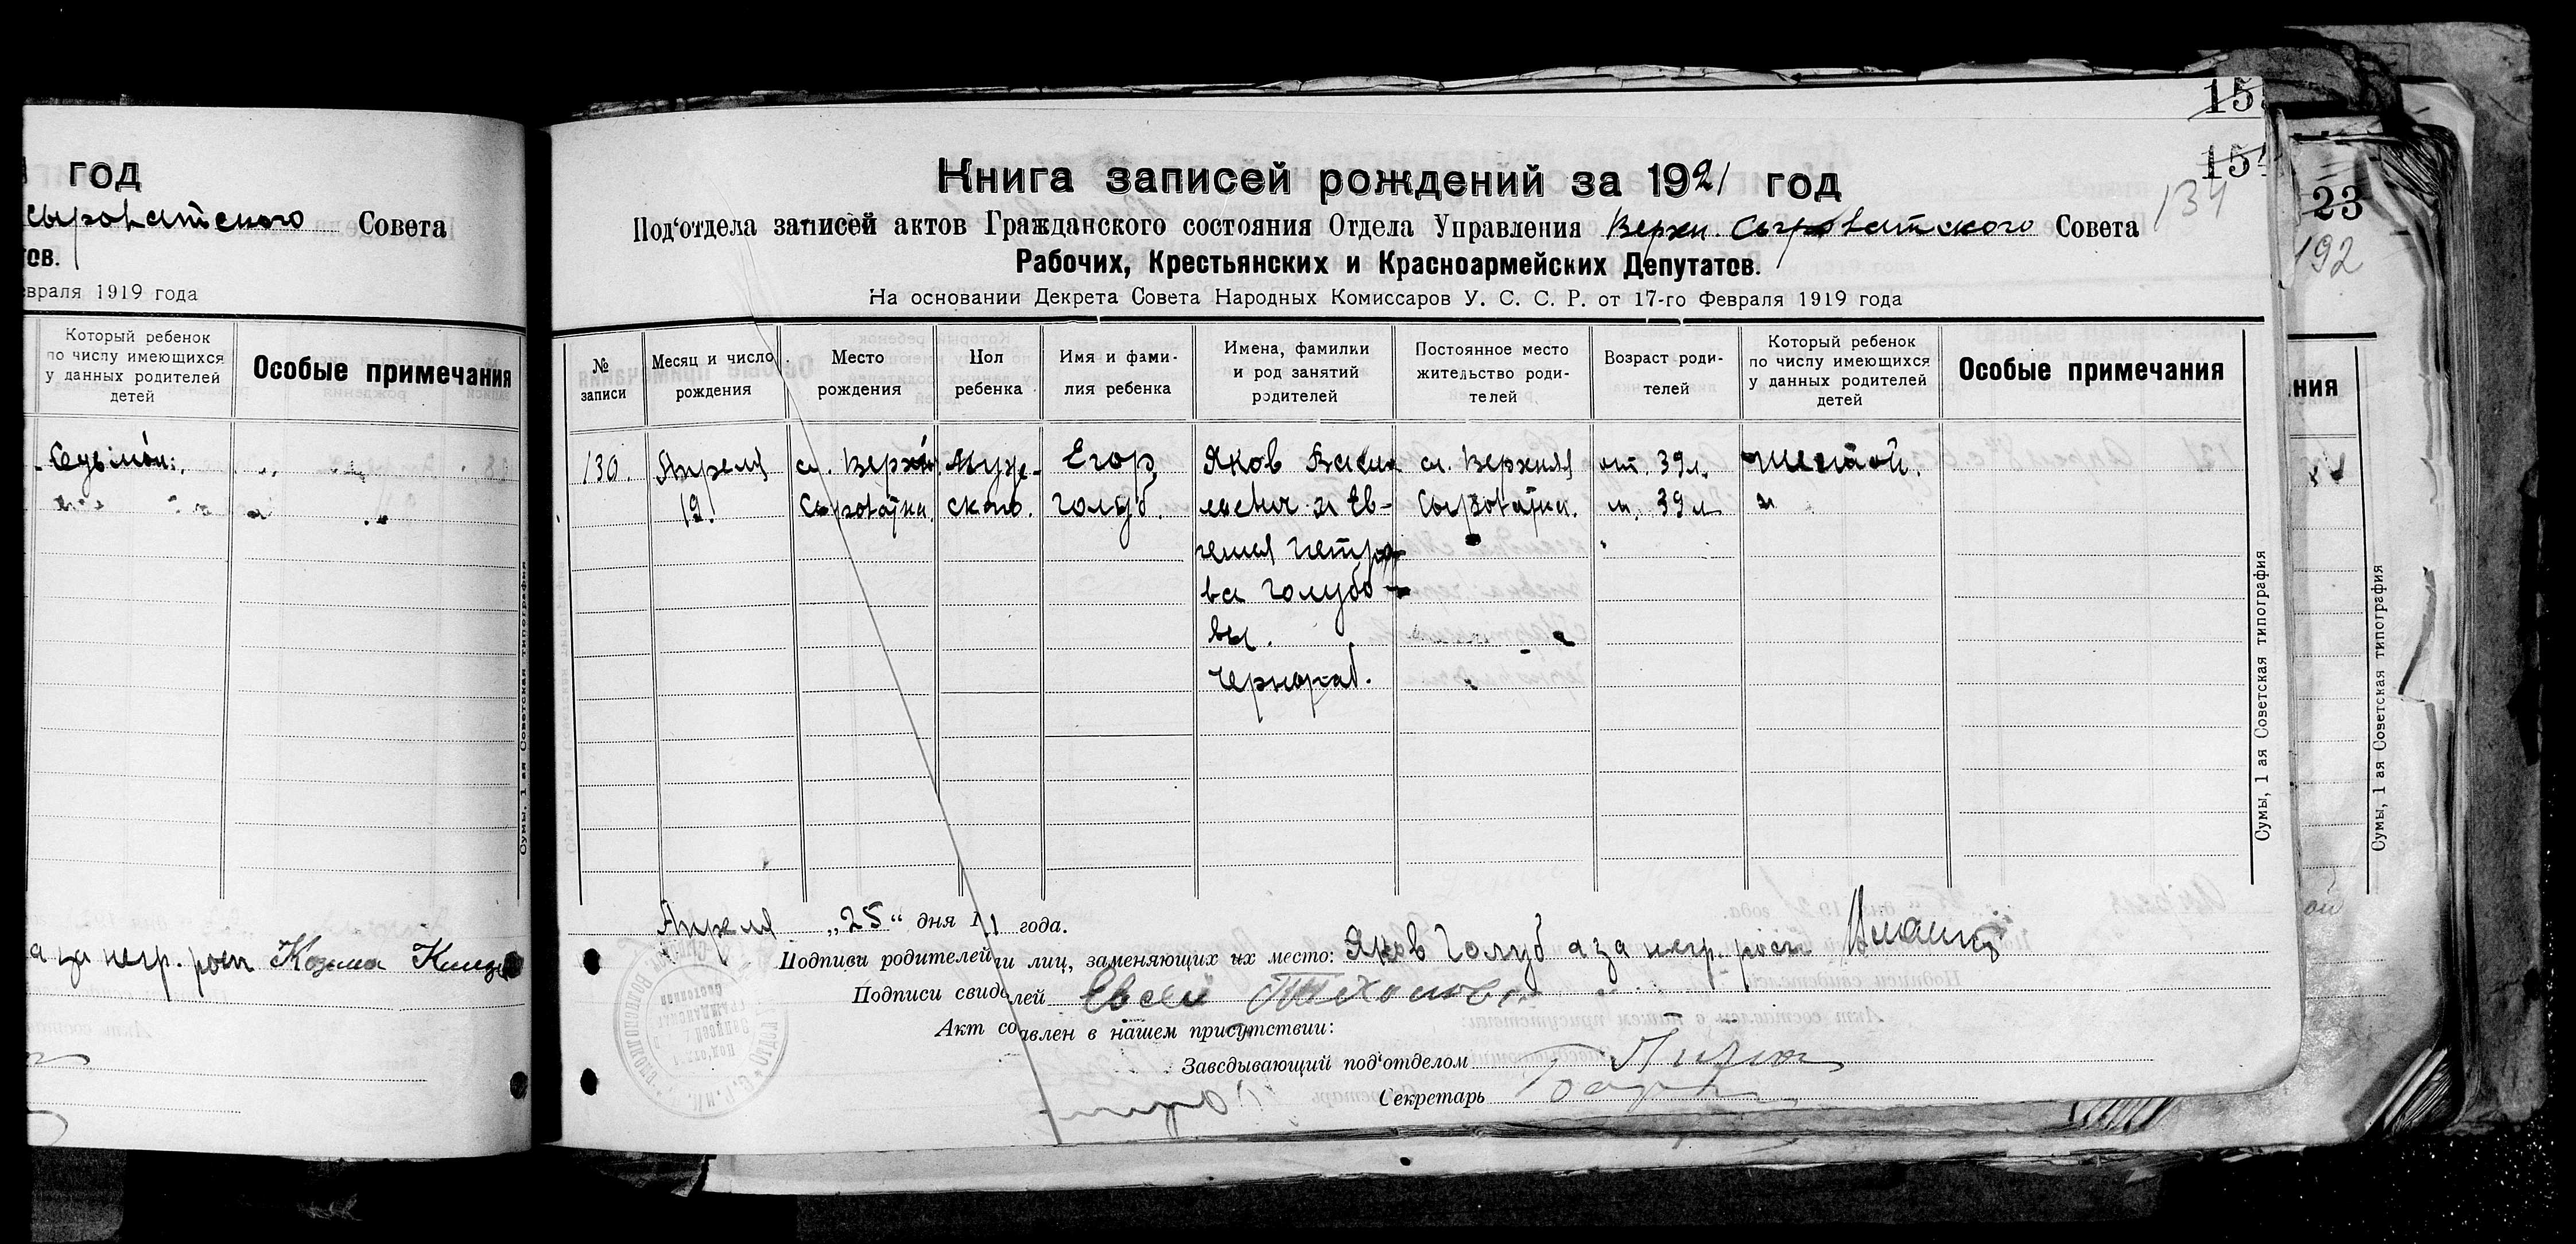 год
Сыроватского Совета
тов.
евраля 1919 года
Который ребенок
по числу имеющихся
у данных родителей
детей
Особые примечания
Седьмой.
а за негр. росп Козма
Сумы, 1 ая Советская типография
15
15
134
Книга записей рождений за 1921 год
Под‘отдела записей актов Гражданского состояния Отдела Управления Верхн. Сыроватского Совета
Рабочих, Крестьянских и Красноармейских Депутатов.
На основании Декрета Совета Народных Комиссаров У. С. С. Р. от 17-го Февраля 1919 года
№
записи
Месяц и число
рождения
Место
рождения
Пол
ребенка
Имя и фами-
лия ребенка
Имена, фамилии
и род занятий
родителей
Постоянное место
жительство роди-
телей
Возраст роди-
телей
Который ребенок
по числу имеющихся
у данных родителей
детей
Особые примечания
130.
Апреля
19.
сл. Верхн.
Сыроватка.
Муже-
ского.
Егор
Голуб.
Яков Васи-
левич и Ев-
гения Петро-
ва Голубо-
вы.
Чернораб.
сл. Верхняя
Сыроватка.
от. 39 л.
м. 39 л
шестой.
Апреля „25“ дня 1 1 года.
Подписи родителей ли лиц, заменяющих их место: Яков Голуб а за негр. росп
Подписи свиде лей Евсей
Акт со авлен в нашем присутствии:
Заведывающий под‘отделом
Секретарь
Сумы, 1 ая Советская типография
23
192
ния
Сумы, 1 ая Советская типография
ой